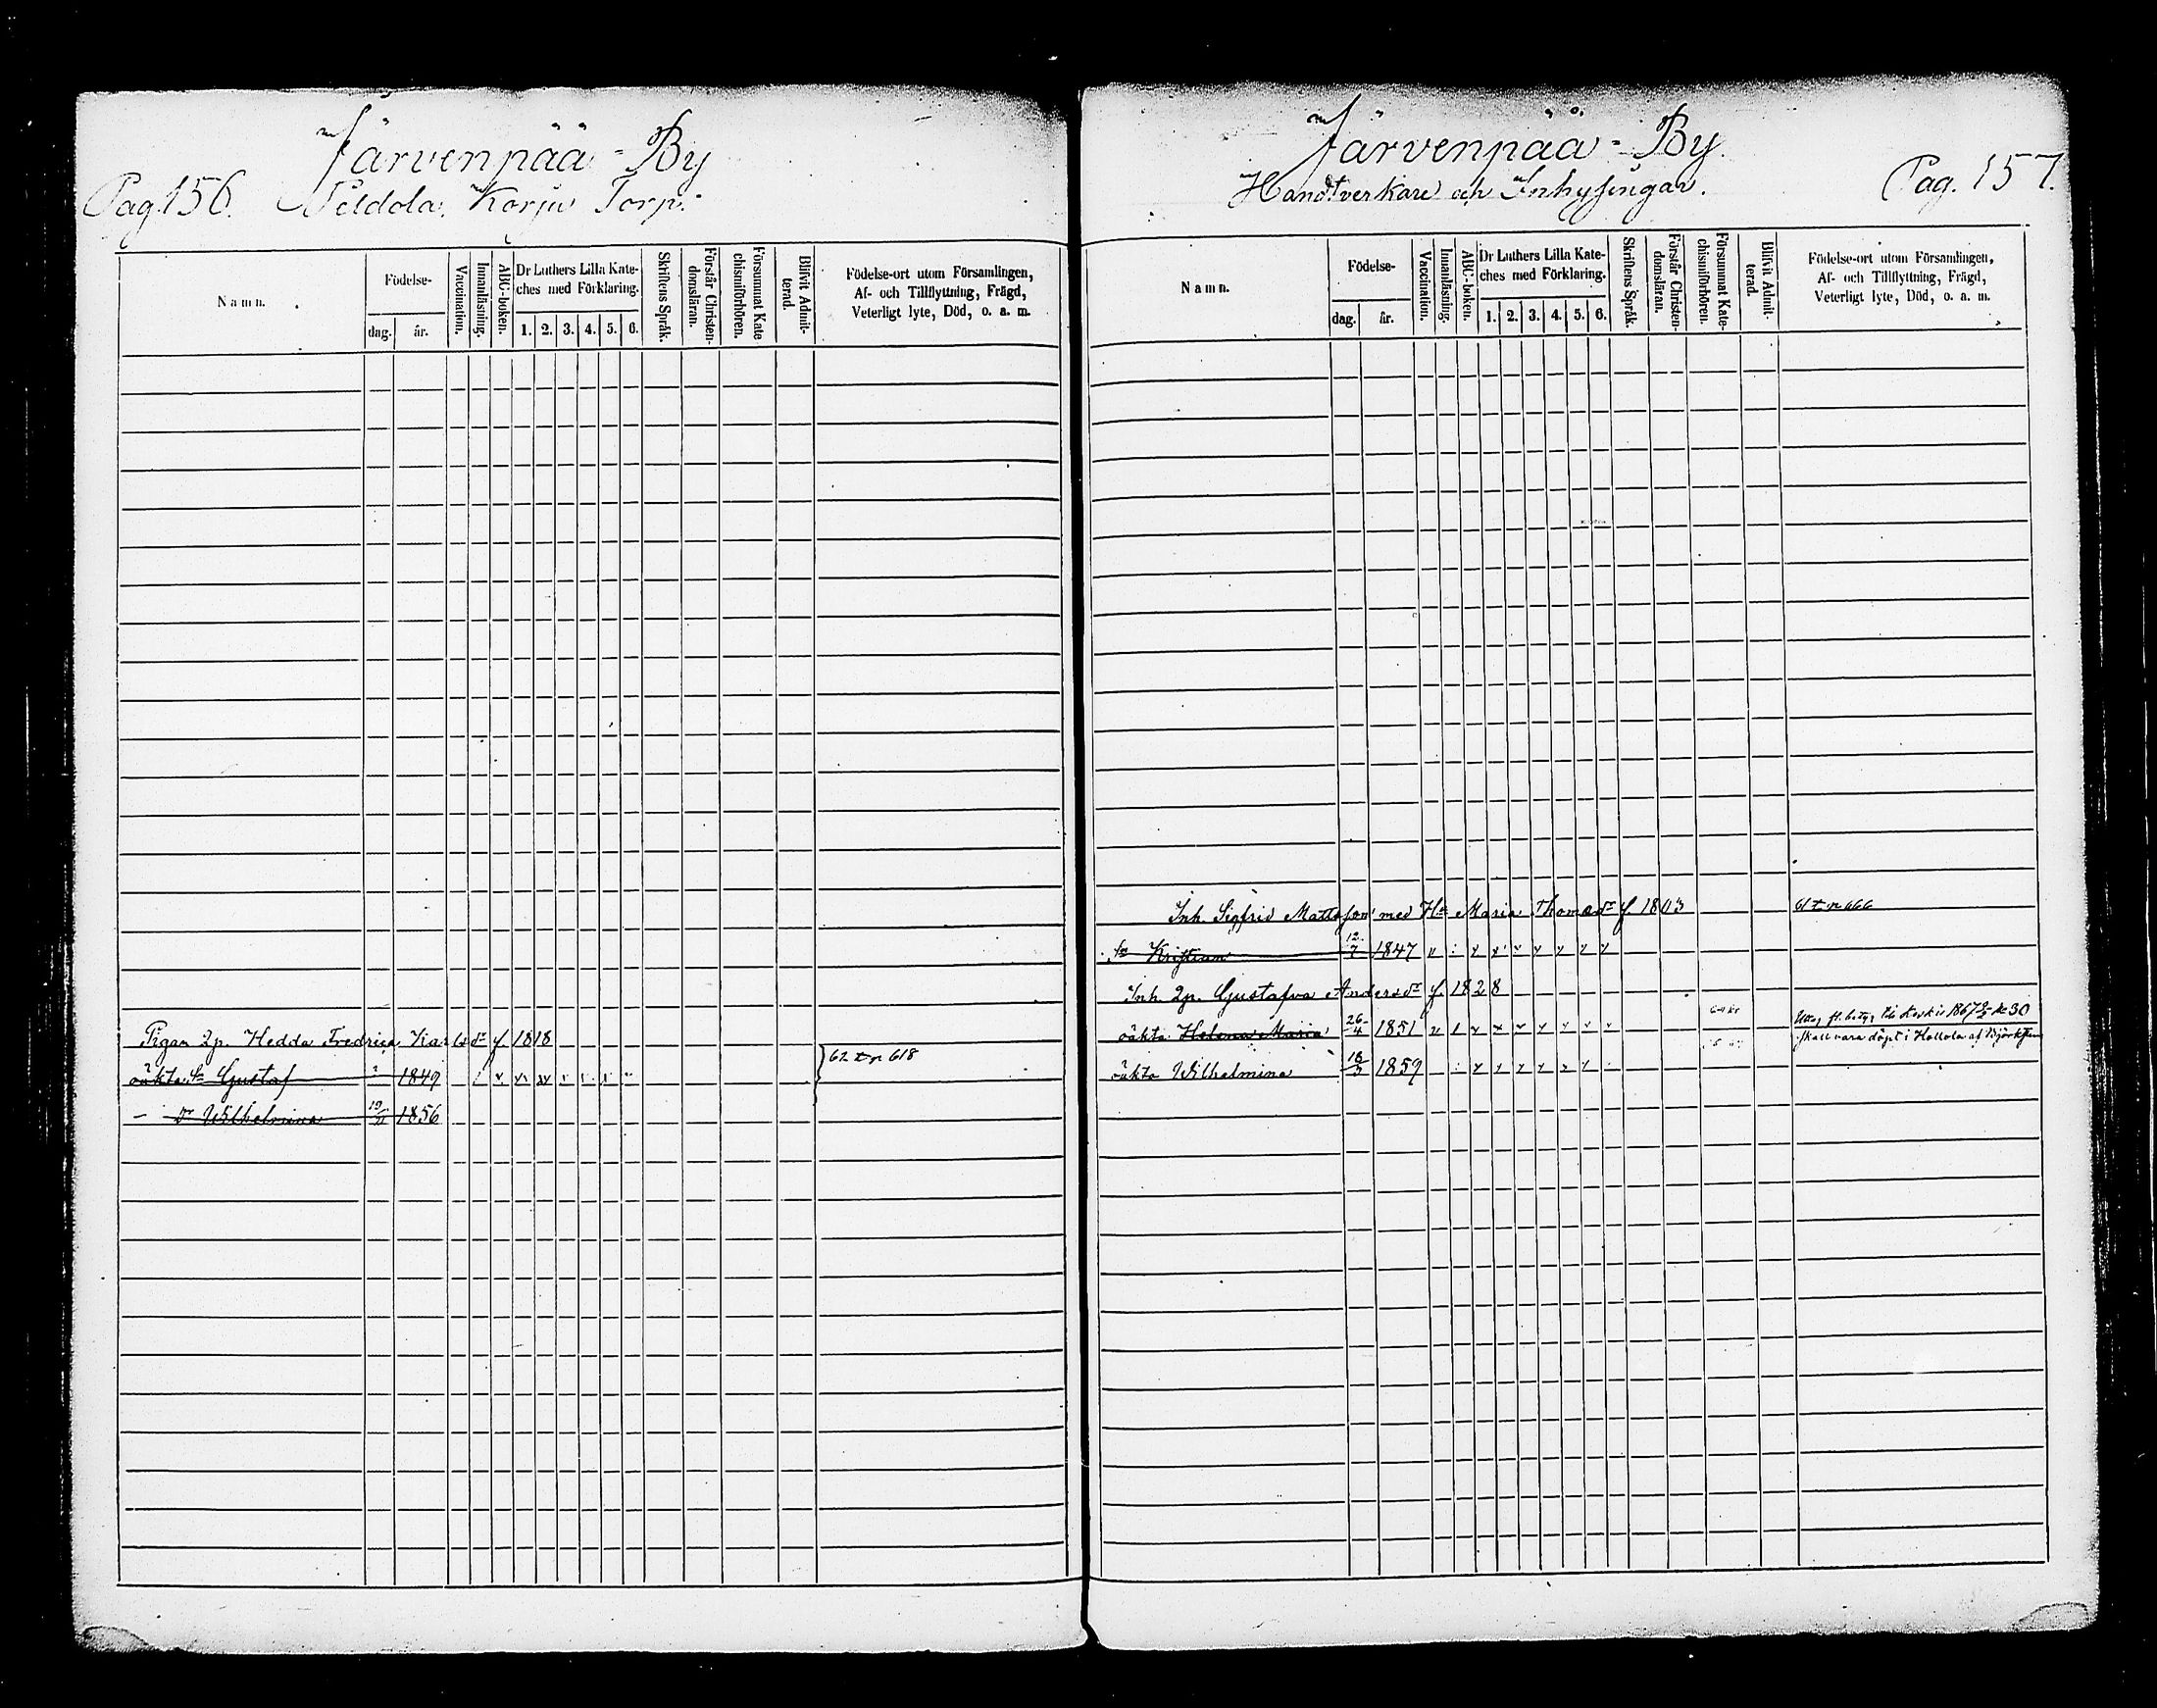 Järvenpää - By
Pag. 156. Peldola, Korju Torp.
Namn.
Födelse-
dag. år.
Vaccination.
Innanläsning.
ABC-boken.
Dr Luthers Lilla Kate-
ches med Förklaring.
1. 2. 3. 4. 5. 6.
Skriftens Språk.
Förstår Christen-
domsläran.
Försummat Kate
chismiförhören.
Blifvit Admit-
terad.
Födelse-ort utom Församlingen,
Af- och Tillflyttning, Frägd,
Veterligt lyte, Död, o. a. m.
Pigan Hedda Fredrica Karlsdr f. 1818
oäkta Sn Gustaf 1849
62 tr n 618
— dr Wilhelmina 1856
Järvenpää - By.
Handtverkare och Inhysingar.
Pag. 157.
Namn.
Födelse-
dag. år.
Vaccination.
Innanläsning.
ABC-boken.
Dr Luthers Lilla Kate-
ches med Förklaring.
1. 2. 3. 4. 5. 6.
Skriftens Språk.
Förstår Christen-
domsläran.
Försummat Kate-
chismiförhören.
Blifvit Admit-
terad.
Födelse-ort utom Församlingen,
Af- och Tillflyttning, Frägd,
Veterligt lyte, Död, o. a. m.
Inh. Sigfrid Mattsson med Hu Maria Thomasdr f. 1803
Sn Kristian 12/7 1847
Inh. Gustafva Andersdr f. 1828
oäkta Helena Maria 26/4 1851
skall vara döpt i Hollola af Björksten
oäkta Wilhelmina 1859